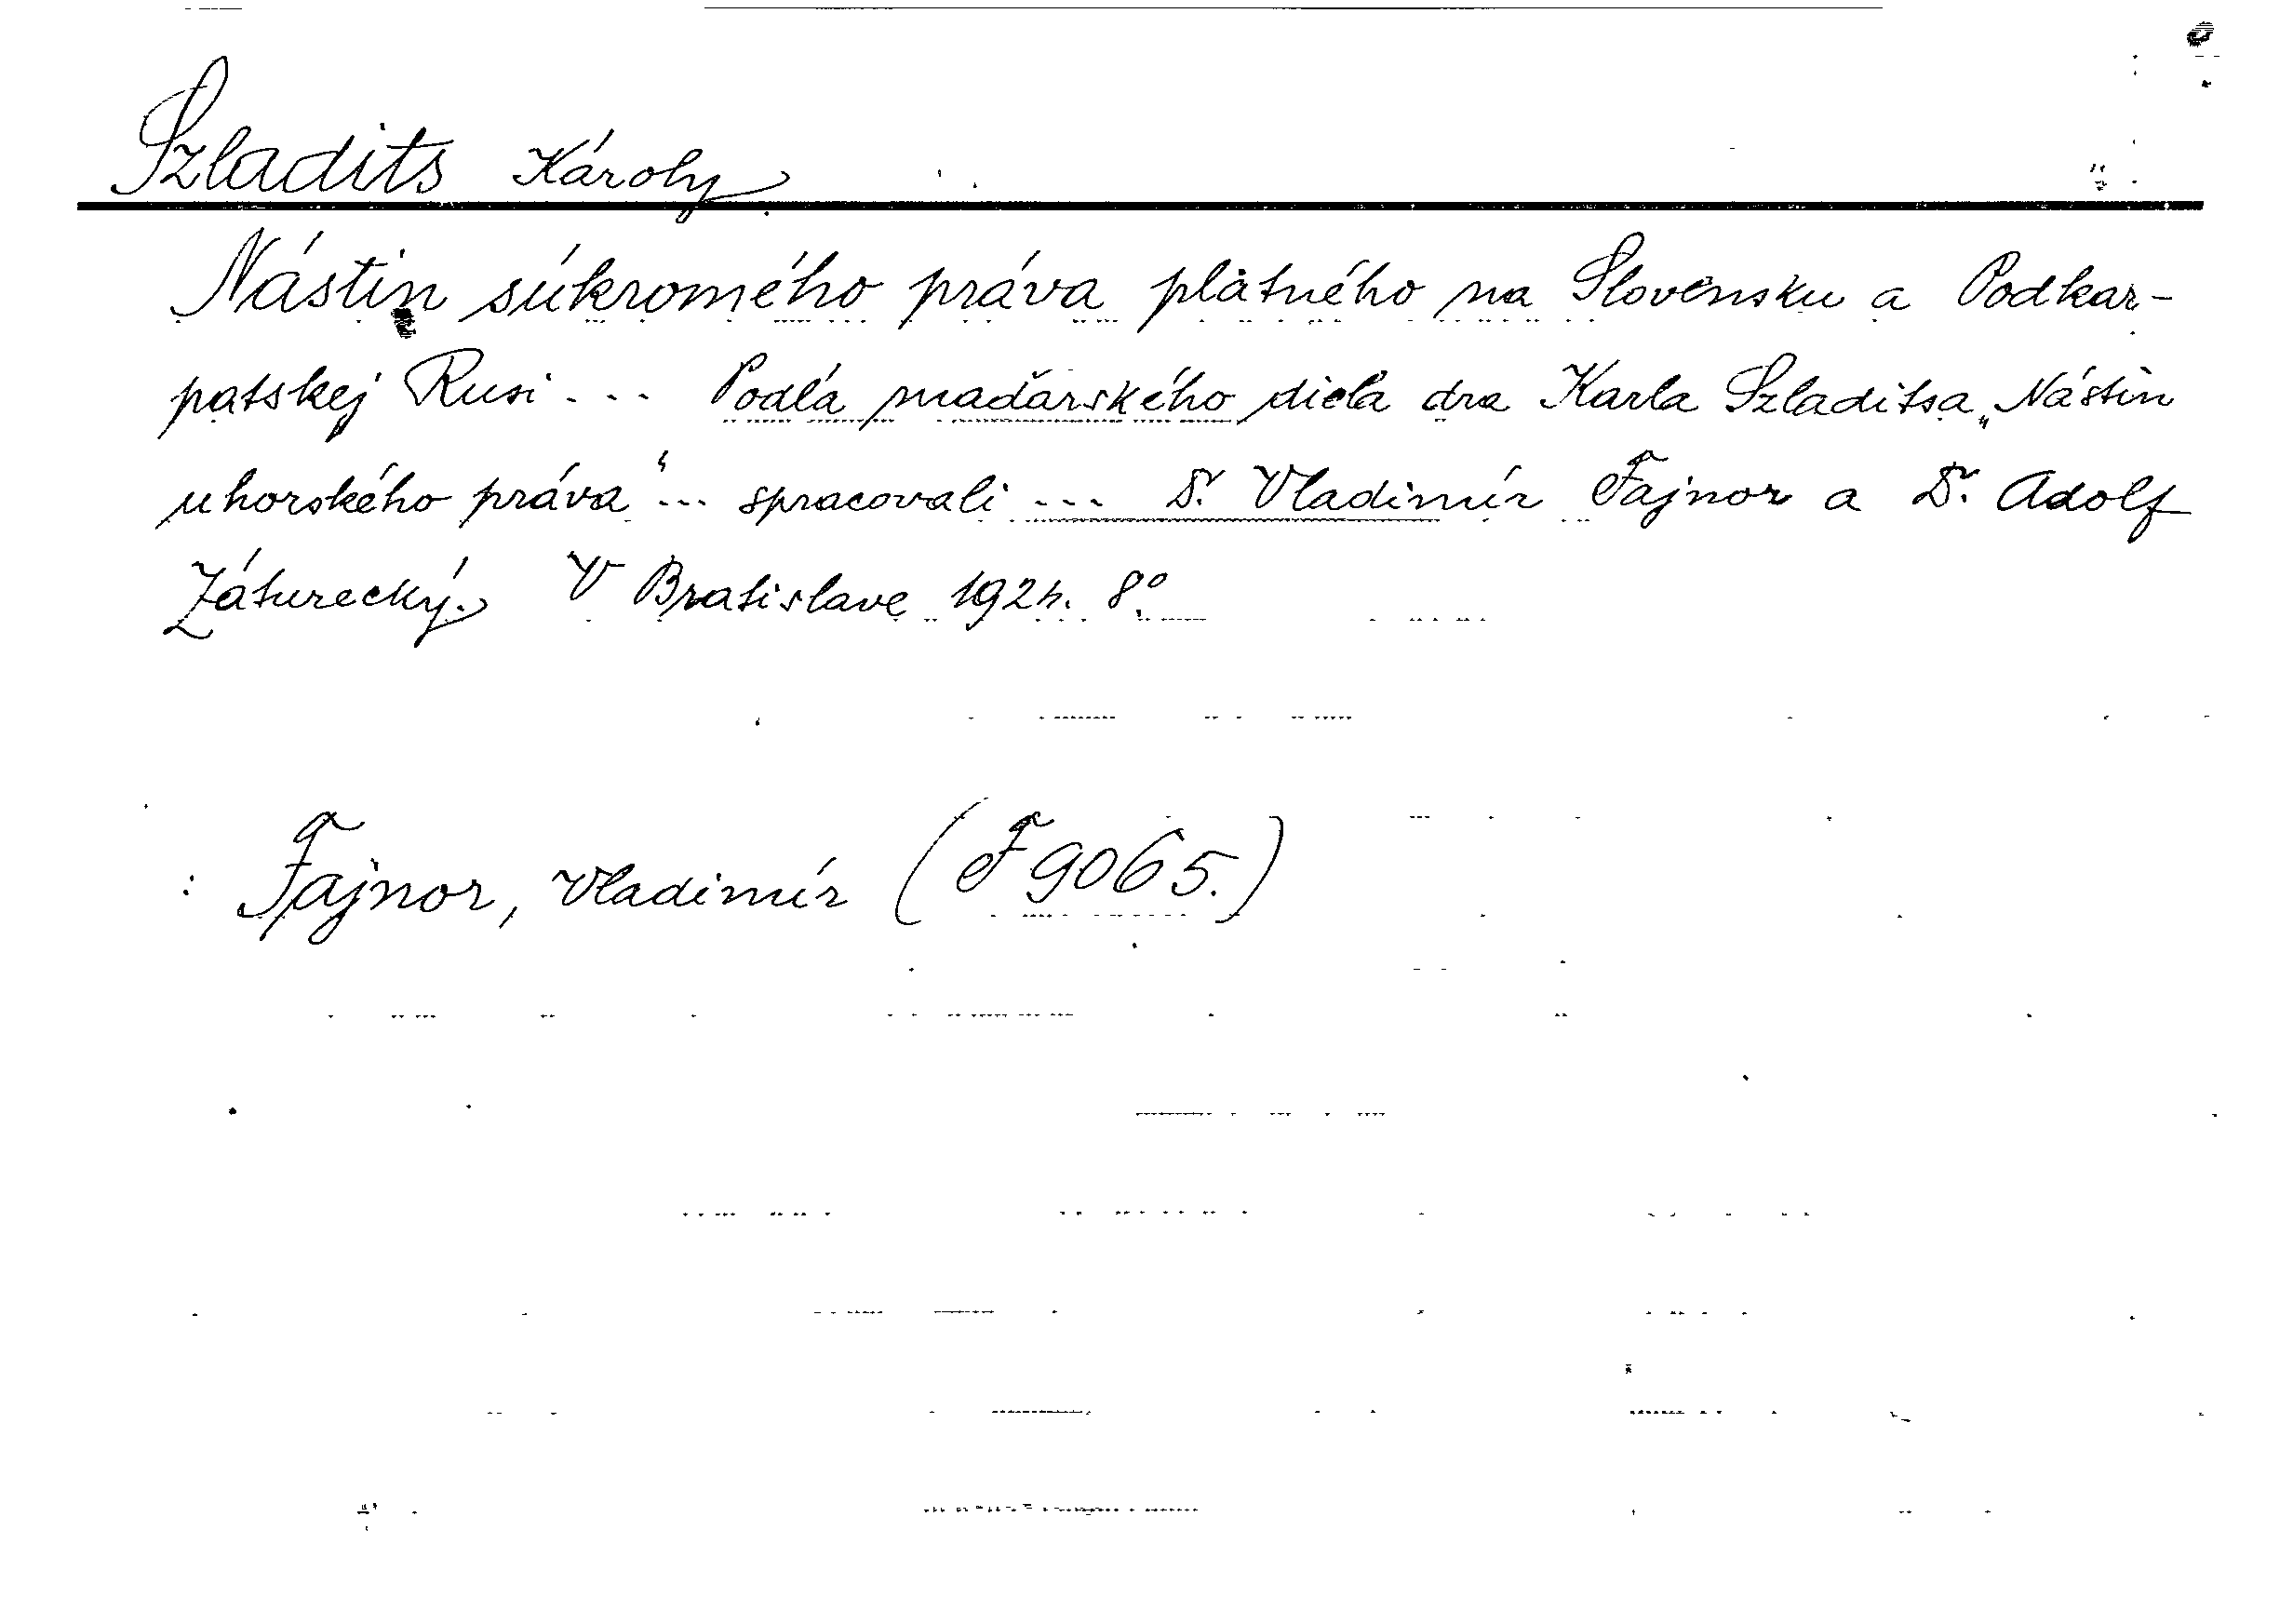 Szladits Károly
Nástin súkromého práva platného na Slovensku a Podkar-
patskej Rusi... Podľa maďarského diela dra Karla Szladitsa „Nástin
uhorského práva"... spracovali ... Dr. Vladimír Fajnor a Dr. Adolf
Záturecký. V Bratislave 1924. 8°.
: Fajnor, Vladimír (F 9065.)